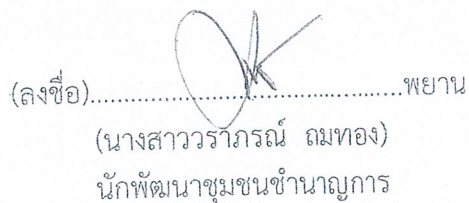 (ลงชื่อ)........................................พยาน
(นางสาววราภรณ์ ถมทอง)
นักพัฒนาชุมชนชำนาญการ